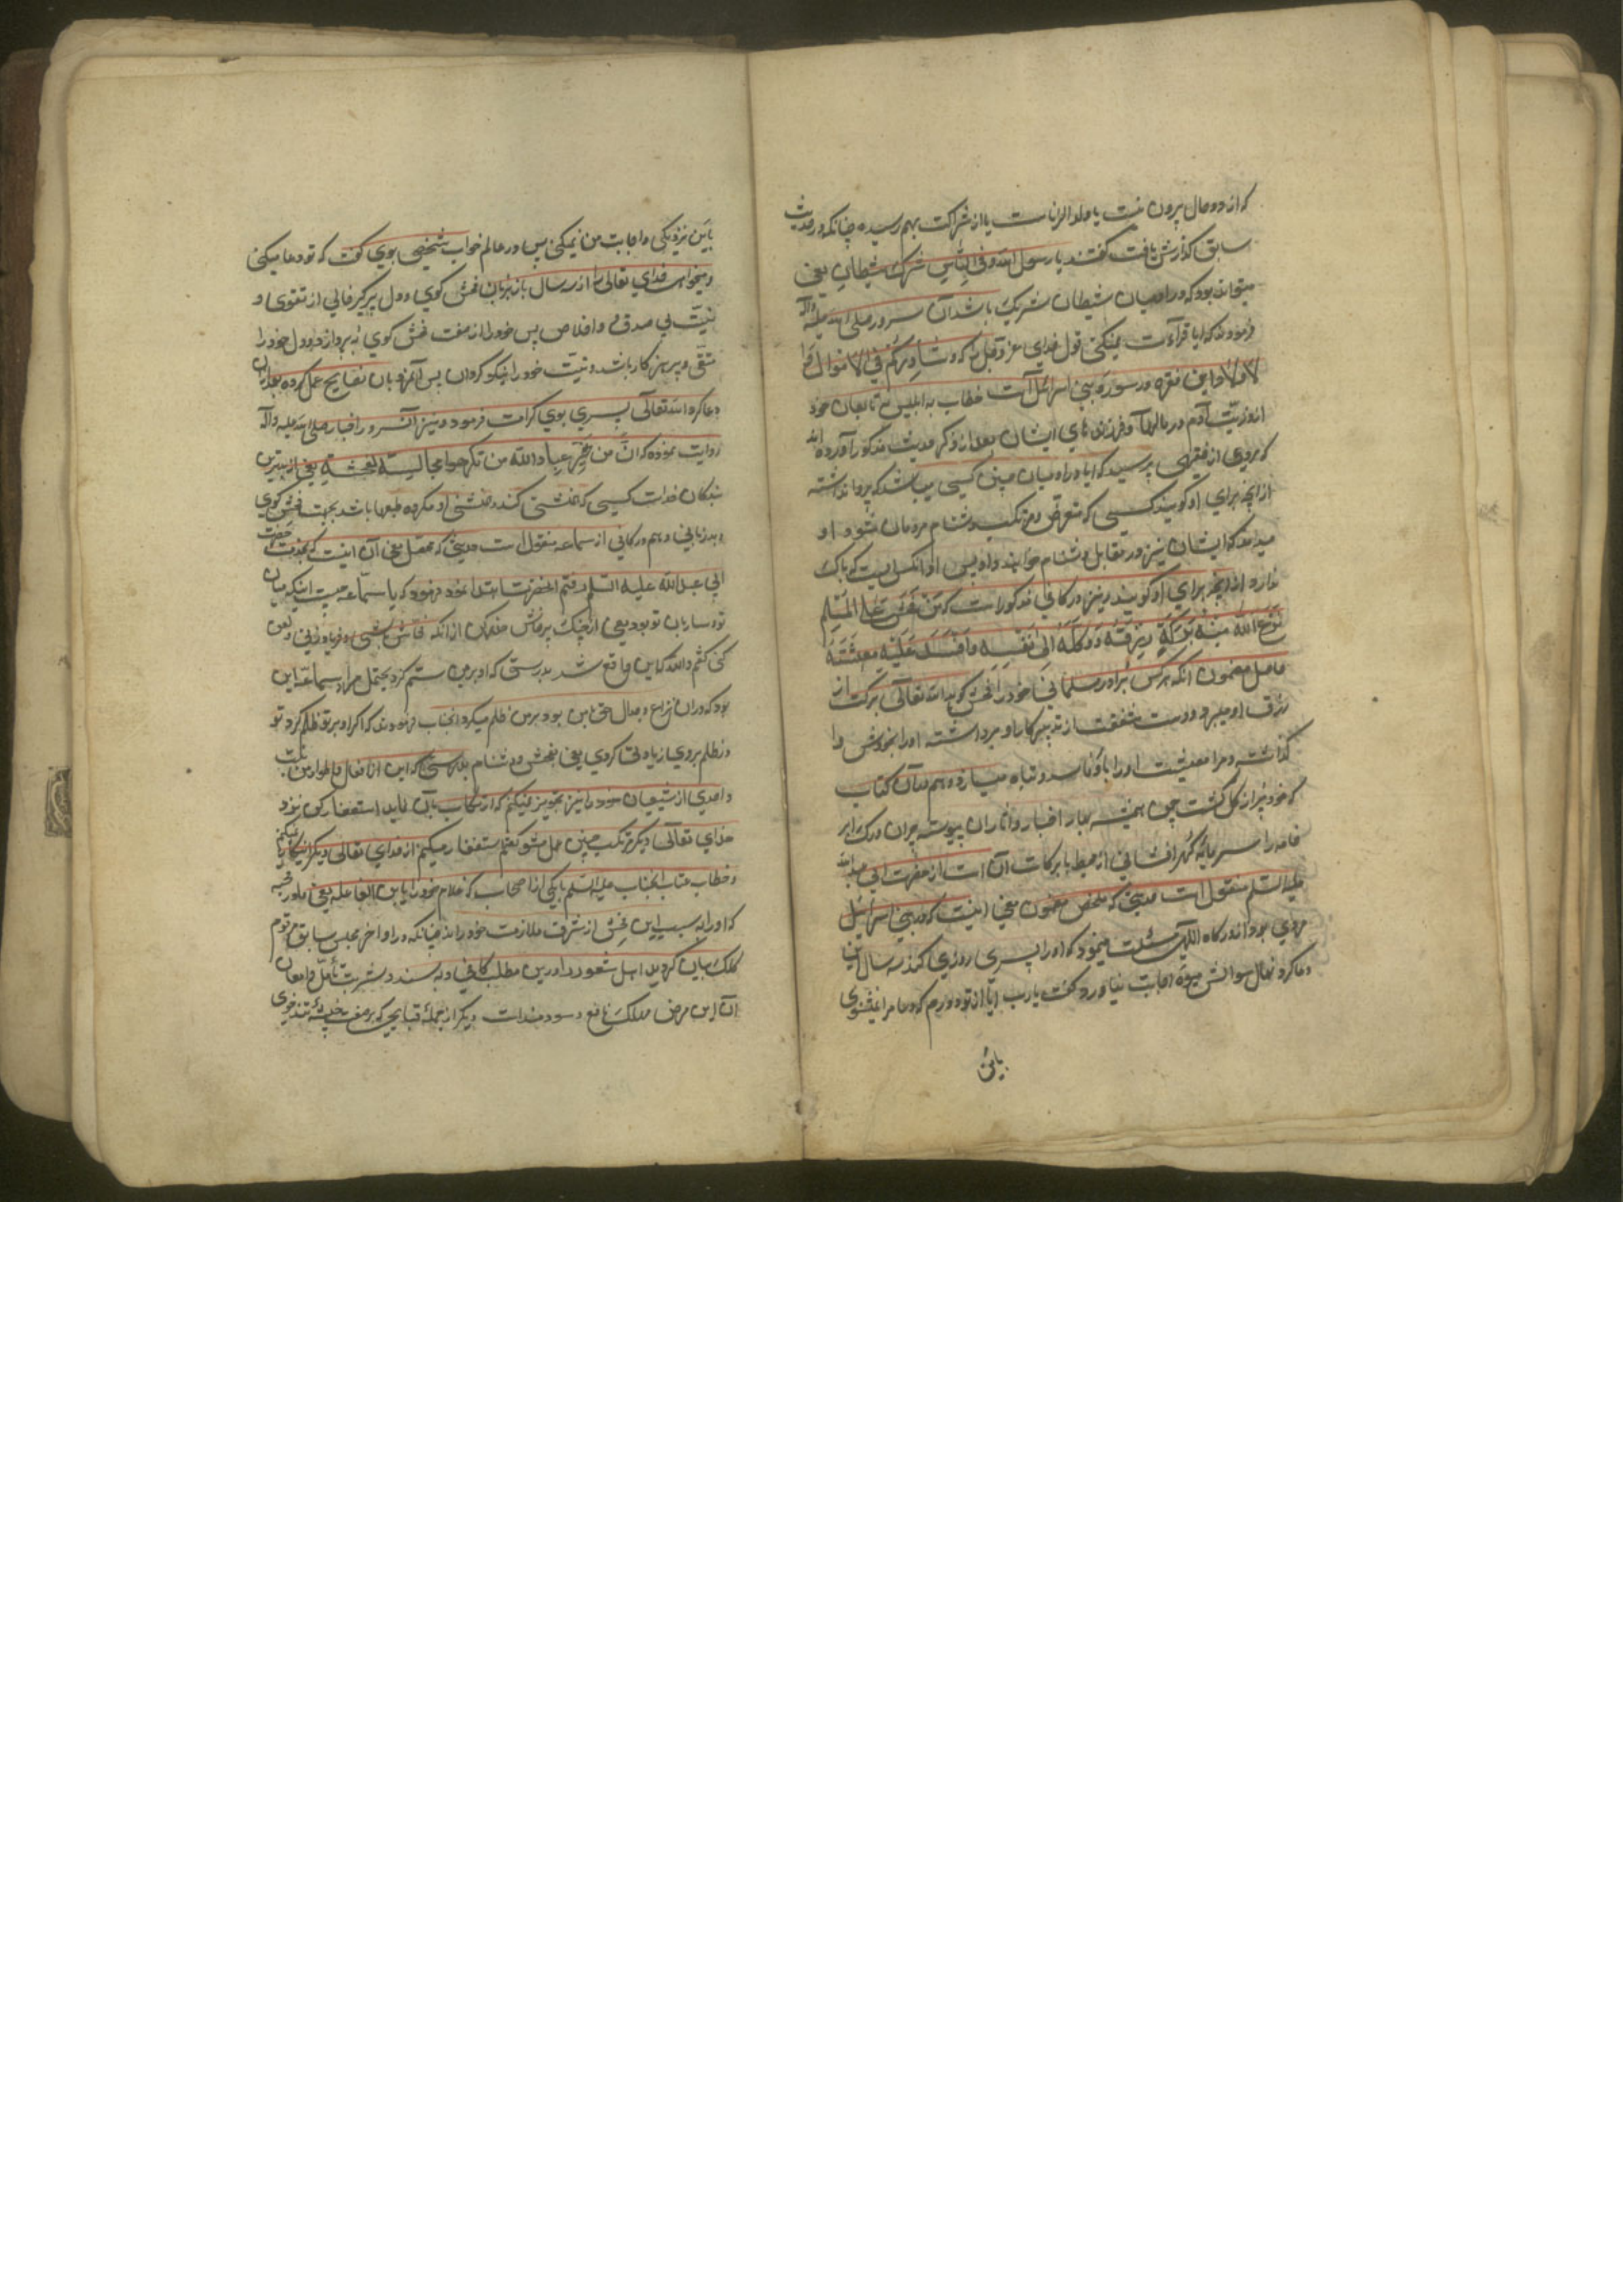 که از دو حال بیرون نیست یا ولد الزناست یا از شراکت بهم رسیده چنانکه در حدیث
سابق گذارش یافت گفتند یا رسول الله و فی الناس شرک شیطان یعنی
میتواند بود که در آدمیان شیطان شریک باشد آن سرور صلی الله علیه وآله
فرمودند که آیا قرآءت نمیکنی قول خدای عز وجل را که وشارکهم فی الاموال و
الاولاد و این فقره در سوره بنی اسرائیل است خطاب به ابلیس تابعان خود
از ذریت آدم در مالها و فرزندهای ایشان بعد از ذکر حدیث مذکور آورده اند
که مردی از فقیهی پرسید که آیا در آدمیان چنین کسی میباشد که پروا نداشته
از آنچه برای او گویند کسی که متعرض و مرتکب دشنام مردمان شود و او
میداند که ایشان نیز در مقابل دشنام خواهند داد پس او آنکس است که باک
ندارد از آنچه برای او گویند و نیز در کافی مذکور است که من فحش علی المسلم
نزع الله منه برکة رزقه و وکله الی نفسه وافسد علیه معیشته
حاصل مضمون آنکه هر کس برادر مسلمانی خود را فحش گوید الله تعالی برکت از
رزق او میبرد و دست شفقت از تدبیر کار او برداشته او را بخودش وا
گذاشته و مر معیشت او را فاسد و تباه میسازد و هم در آن کتاب
که خود پر از گل گشت چمن همیشه بهار اخبار و آثار آن پیوسته
خامه را سرمایه گهرافشانی از محیط با برکات آن است از حضرت ابی عبد الله
علیه السلم منقول است حدیثی که ملخص مضمون یعنی اینست که در بنی اسرائیل
مردی بود از درگاه الهی مسئلت مینمود که او را پسری روزی کند سه سال این
دعا کرد نهال سوالش میوه اجابت نیاورد گفت یارب آیا از تو دورم که دعا مرا نمیشنوی
یا تو
یا بمن نزدیکی و اجابت من نمیکنی پس در عالم خواب شخصی بوی گفت که تو دعا میکنی
و میخوانی خدای تعالی را از سه سال باز بزبان فحش گوی و دل پرکبر خالی از تقوی و
نیت بی صدق و اخلاص پس خود را از صفت فحش گوی بپرداز و دل خود را
متقی و پرهیزکار باشد و نیت خود را نیکو گردان پس آنمرد بان نصایح عمل کرده بعد از آن
دعا کرد الله تعالی پسری بوی کرامت فرمود و نیز آن سرور اخبار صلی الله علیه وآله
روایت نموده که ان من شر عباد الله من تکره مجالسته لفحشه یعنی از بدترین
بندگان خداست کسی که همنشینی کند و همنشینی او مکروه طبعها باشد بجهت فحش گوی
و بدزبانی و هم در کافی از سماعه منقول است حدیثی که محصل معنی آن اینست که بخدمت حضرت
ابی عبد الله علیه السلم رفتم آنحضرت ابتدا نمود فرمود که یا سماعه چیست اینکه میان
تو و ساربان تو بود یعنی از جنگ و پرخاش حذر کن از آنکه فحاش باشی و فریاد زنی و لعن
کنی گفتم والله که این واقع شد بدرستی که او بر من ستم کرد یحتمل مراد سماعه این
بود که در آن نزاع و جدال حق با من بود بر من ظلم میکرد آنجناب فرمودند که اگر او بر تو ظلم کرد تو
در ظلم بروی زیادتی کردی یعنی بفحش و دشنام بدرستی که این از افعال و اطوار من نیست
و احدی از شیعیان خود را نیز تجویز نمیکنم که ارتکاب بآن نماید استغفار کن نزد
خدای تعالی دیگر مرتکب چنین عمل مشو گفتم استغفار میکنم از خدای تعالی دیگر این کار نمیکنم
و خطاب عتاب آنجناب علیه السلم با یکی از اصحاب که غلام خود را یا بن الفاعله یعنی مادر قحبه
که او را به سبب این فحش از شرف ملازمت خود راند چنانکه در اواخر مجلس سابق مرقوم
کلک بیان گردید اهل شعور را در این مطلب کافی و بسند و شربت تأمل و امعان
آن این مرض مهلک نافع و سودمند است دیگر از جمله قبایحی که بر صفت خبیثه تندخوی